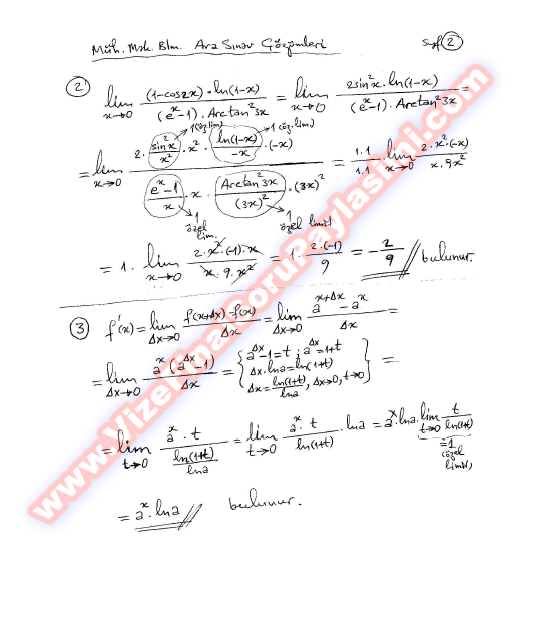 Müh. Mak. Blm. Ara Sınav Çözümleri
② lim x→0 (1-cos2x)·ln(1-x) / (e^x-1)·Arctan²3x = lim x→0 2sin²x·ln(1-x) / (e^x-1)·Arctan²3x =
1 (öz.lim) 1 (öz.lim)
= lim x→0 2·(sin²x/x²)·x²·(ln(1-x)/-x)·(-x) / ((e^x-1)/x)·x·(Arctan²3x/(3x)²)·(3x)² = 1.1/1.1 lim x→0 2·x²·(-x) / x·9x²
1 özel lim. 1 özel limit
= 1· lim x→0 2·x²·(-1)·x / x·9·x² = 1· 2·(-1)/9 = -2/9 // bulunur.
③ f'(x) = lim Δx→0 f(x+Δx)-f(x) / Δx = lim Δx→0 a^(x+Δx) - a^x / Δx =
= lim Δx→0 a^x (a^Δx -1) / Δx = { a^Δx -1=t ; a^Δx =1+t
Δx·lna=ln(1+t)
Δx = ln(1+t)/lna , Δx→0, t→0 } =
= lim t→0 a^x · t / (ln(1+t)/lna) = lim t→0 a^x · t / ln(1+t) · lna = a^x·lna· lim t→0 t / ln(1+t)
=1 özel limit,
= a^x · lna // bulunur.
www.VizeFinalSoruPaylasimi.com